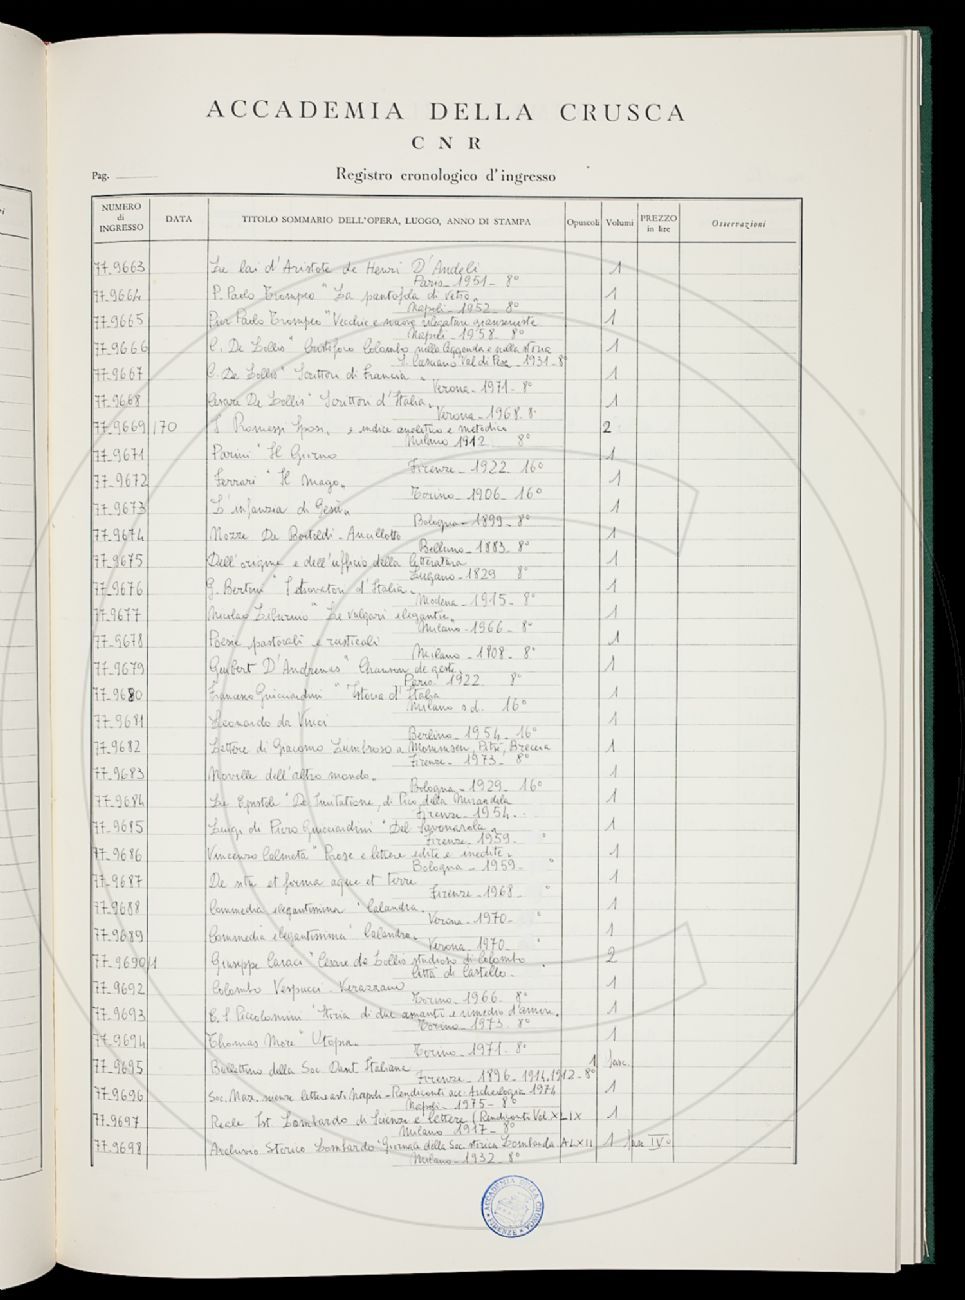 ACCADEMIA DELLA CRUSCA
C N R
Pag.
Registro cronologico d'ingresso
NUMERO di INGRESSO DATA TITOLO SOMMARIO DELL'OPERA, LUOGO, ANNO DI STAMPA Opuscoli Volumi PREZZO in lire Osservazioni
77-9663 Le lai d'Aristote de Henri D'Andeli 1
Paris - 1951 - 8°
77-9664 P. Paolo Trompeo "La pantofola di vetro" 1
Napoli - 1952 - 8°
77-9665 Pier Paolo Trompeo "Vecchie e nuove rilegature gianseniste 1
Napoli - 1958 - 8°
77-9666 C. De Lollis "Cristoforo Colombo nella leggenda e nella storia 1
S. Casciano Val di Pesa - 1931 - 8°
77-9667 C. De Lollis "Scrittori di Francia" 1
Verona - 1971 - 8°
77-9668 Cesare De Lollis "Scrittori d'Italia" 1
Verona - 1968. 8°
77-9669/70 I Promessi Sposi, e indice analitico e metodico 2
Milano 1912 8°
77-9671 Parini "Il Giorno 1
Firenze - 1922. 16°
77-9672 Ferrari "Il Mago" 1
Torino - 1906 - 16°
77-9673 L'infanzia di Gesù" 1
Bologna - 1899 - 8°
77-9674 Nozze De Bortoldi - Ancillotto 1
Belluno - 1883 - 8°
77-9675 Dell'origine e dell'ufficio della letteratura 1
Lugano - 1829 8°
77-9676 G. Bertoni "I trovatori d'Italia" 1
Modena - 1915 - 8°
77-9677 Nicolao Liburnio "Le vulgari elegantie" 1
Milano - 1966 - 8°
77-9678 Poesie pastorali e rusticali 1
Milano - 1808 - 8°
77-9679 Guibert D'Andrenas" Chanson de geste 1
Paris 1922 8°
77-9680 Francesco Guicciardini "Istoria d'Italia 1
Milano s.d. 16°
77-9681 Leonardo da Vinci 1
Berlino - 1954 - 16°
77-9682 Lettere di Giacomo Lumbroso a Mommsen, Pitrè, Breccia 1
Firenze - 1973 - 8°
77-9683 Novelle dell'altro mondo. 1
Bologna - 1929 - 16°
77-9684 Le Epistole "De Imitatione, di Pico della Mirandola 1
Firenze - 1954.
77-9685 Luigi di Piero Guicciardini "Del Savonarola" 1
Firenze - 1959 - "
77-9686 Vincenzo Calmeta "Prose e lettere edite e inedite" 1
Bologna - 1959 - "
77-9687 De situ et forma aque et terre 1
Firenze - 1968 - "
77-9688 Commedia elegantissima "Calandra" 1
Verona - 1970 - "
77-9689 Commedia elegantissima "Calandra" 1
Verona - 1970 - "
77-9690/1 Giuseppe Caraci "Cesare de Lollis studioso di Colombo 2
Città di Castello - "
77-9692 Colombo Vespucci Verazzano 1
Torino - 1966 - 8°
77-9693 E. S. Piccolomini "Storia di due amanti e rimedio d'amore" 1
Torino - 1973 - 8°
77-9694 Thomas More "Utopia" 1
Torino - 1971 - 8°
77-9695 Bullettino della Soc. Dant. Italiana 1 fasc.
Firenze - 1896 - 1914, 1912 - 8°
77-9696 Soc. Naz. scienze lettere arti Napoli - Rendiconti acc. Archeologia 1974 1
Napoli - 1975 - 8°
77-9697 Reale Ist. Lombardo di Scienze e lettere (Rendiconti Vol. XLIX 1
Milano 1917 - 8°
77-9698 Archivio Storico Lombardo "Giornale della Soc. storica Lombarda. A. LXII 1 fasc IV°
Milano - 1932 - 8°
ACCADEMIA DELLA CRUSCA
FIRENZE